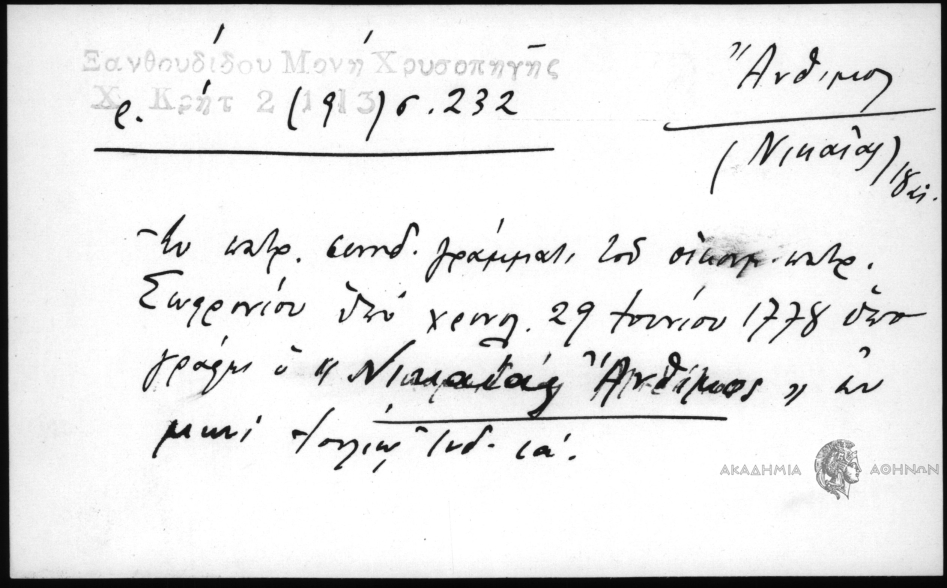 Ξανθουδίδου Μονή Χρυσοπηγῆς
Χ. Κρήτ 2 1913
(9) σ. 232
Ἄνθιμος
(Νικαίας)
Ἐν πατρ. συνοδ. γράμματι τοῦ οἰκουμ. πατρ.
Σωφρονίου ὑπό χρονολ. 29 Ἰουνίου 1778 ὑπο
γράφει ὁ « Νικαίας Ἄνθιμος » ἐν
μηνί Ἰουλίῳ Ἰνδ. ιά.
ΑΚΑΔΗΜΙΑ ΑΘΗΝΩΝ